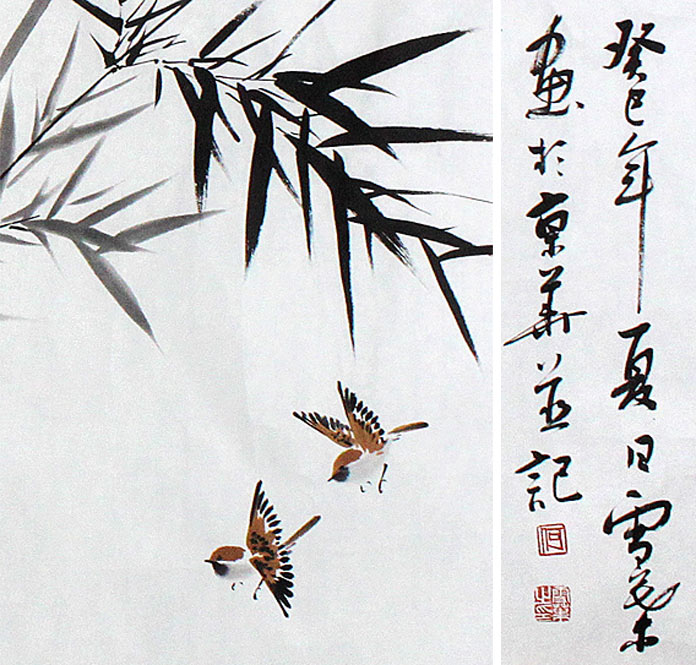 癸巳年夏日雪
畫於京華並記
何